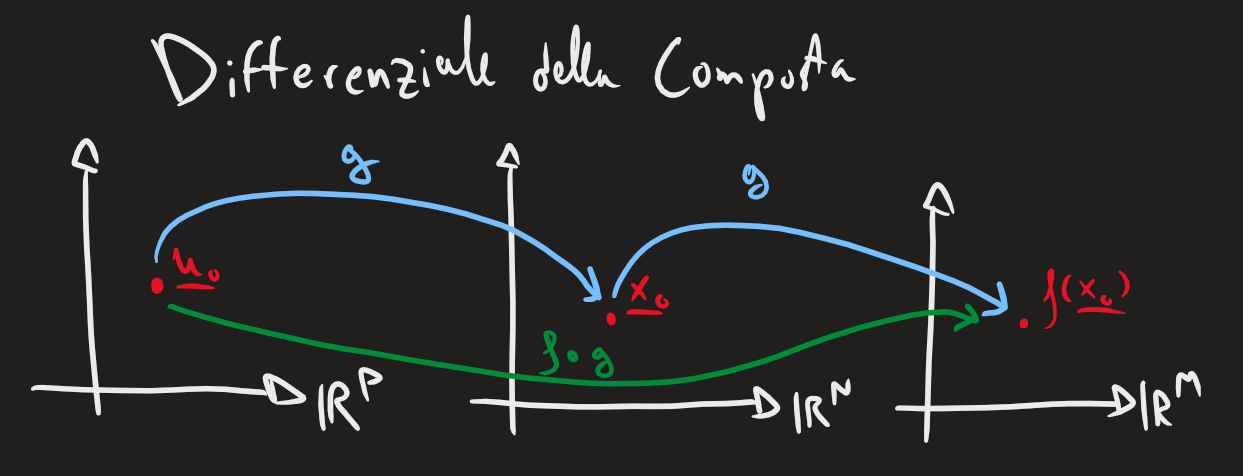 Differenziale della Composta
g g
u₀ x₀ f(x₀)
f∘g
ℝᴾ ℝᴺ ℝᴹ